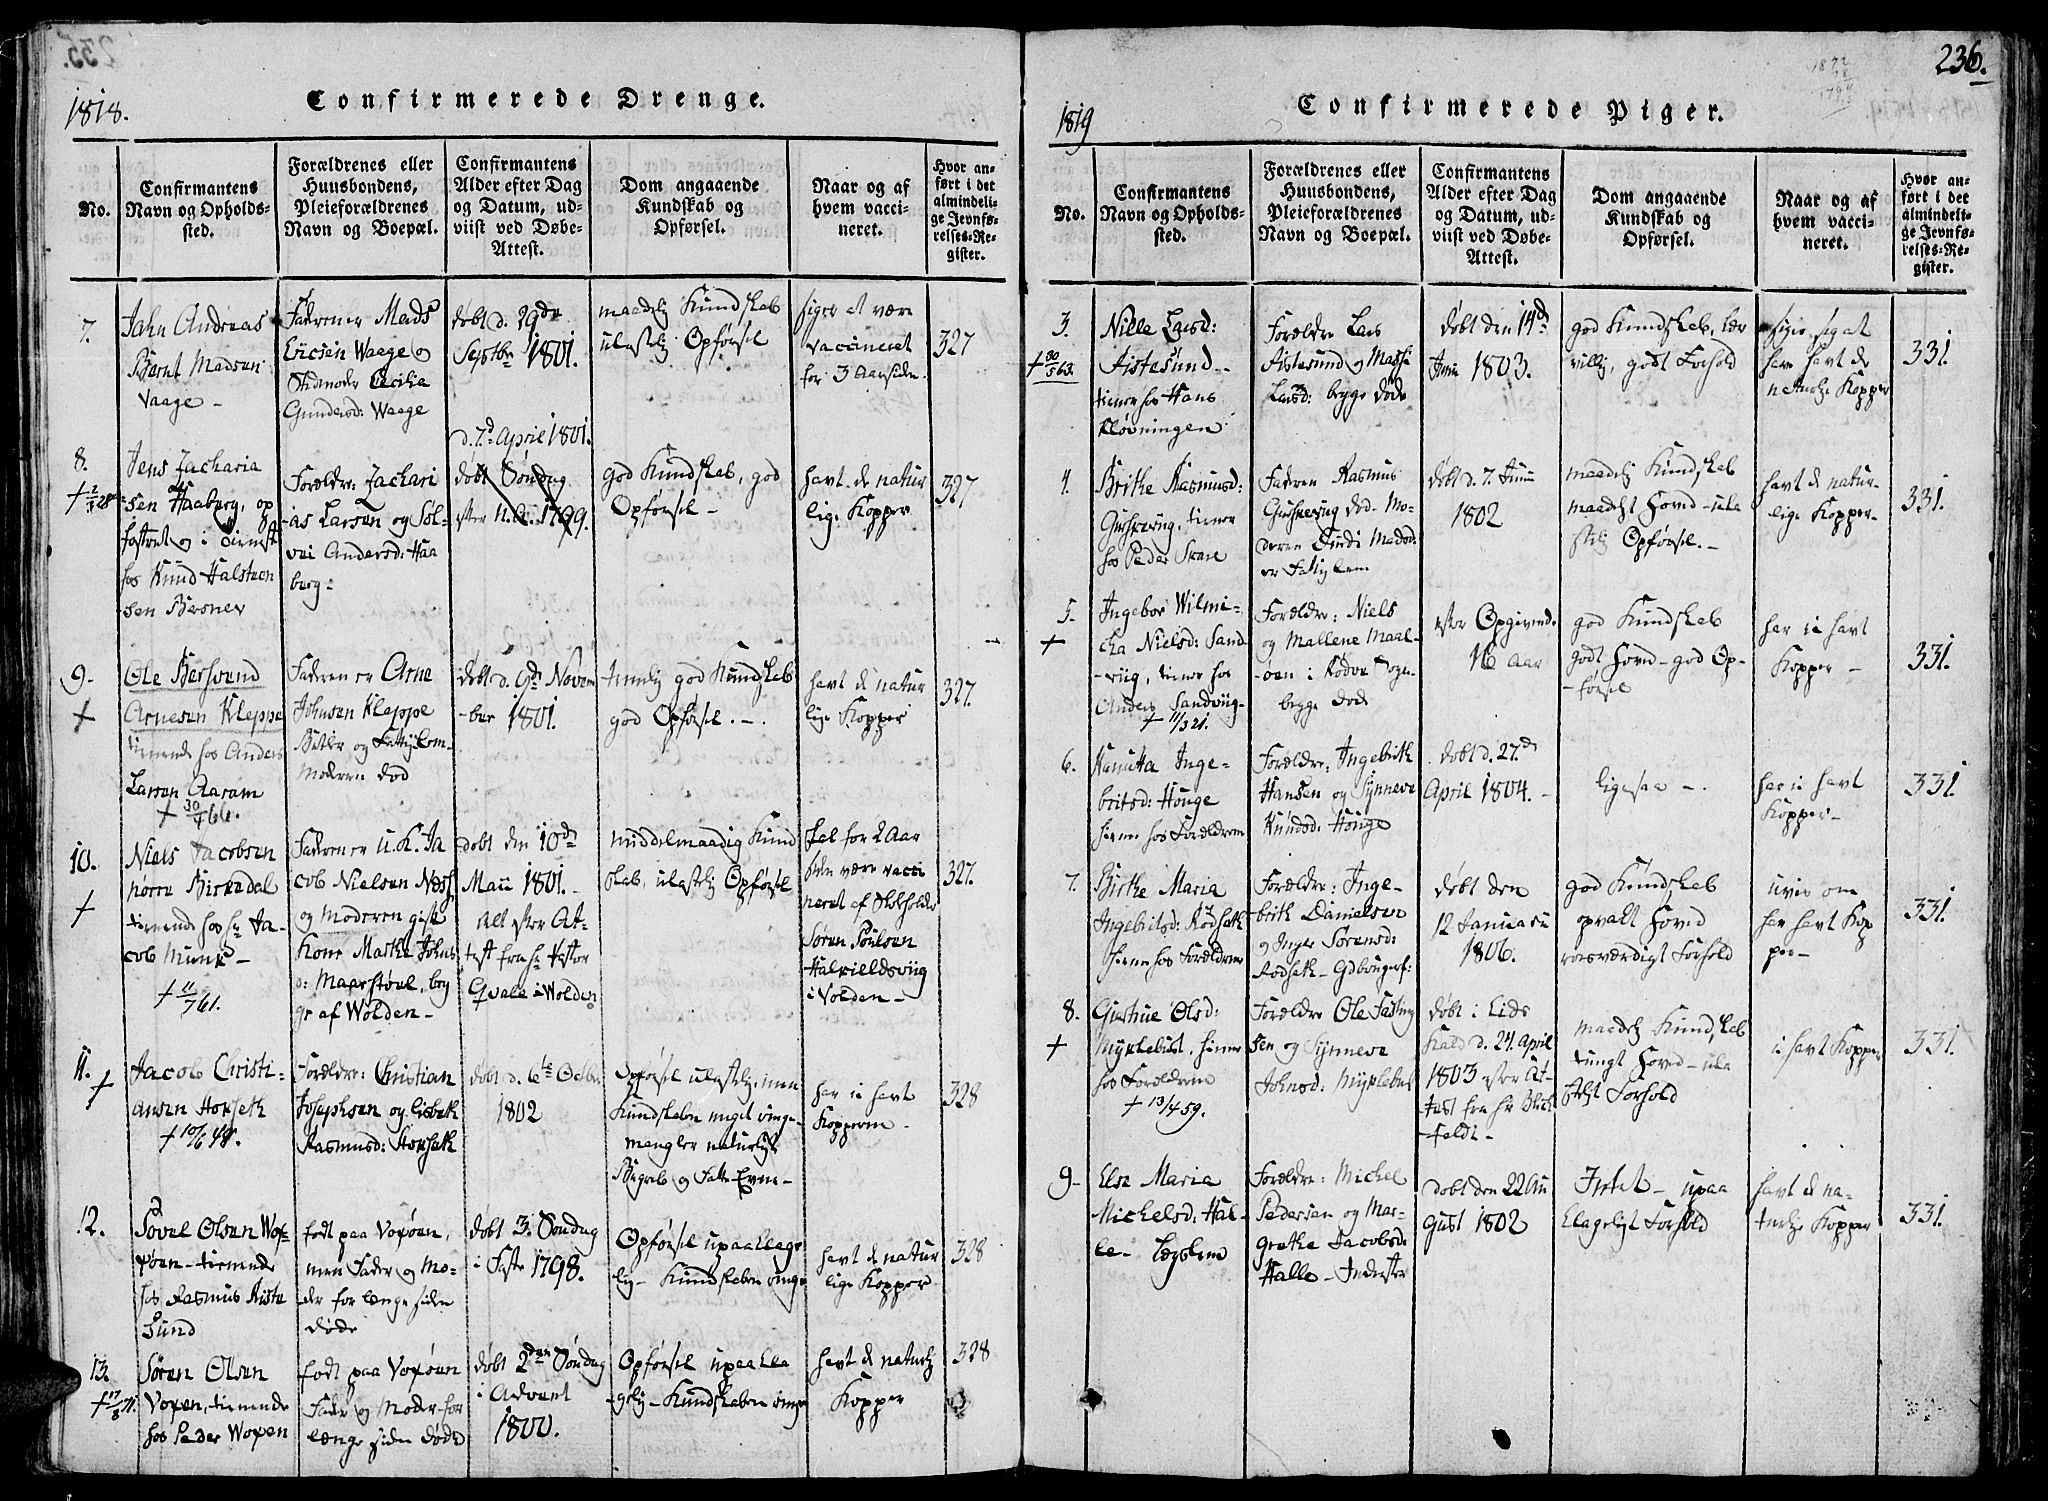 1818.
Confirmerede Drenge.
No.
Confirmantens
Navn og Opholds-
sted.
Forældrenes eller
Huusbondens,
Pleieforældrenes
Navn og Boepæl.
Confirmantens
Alder efter Dag
og Datum, ud-
viist ved Døbe-
Attest.
Dom angaaende
Kundskab og
Opførsel.
Naar og af
hvem vacci-
neret.
Hvor an-
ført i det
almindeli-
ge Jevnfø-
relses-Re-
gister.
7.
Jahn Andreas
Bernt Madsen
Vaage -
Faderen er Mads
Ericsen Waage og
Stidmoder Cecilia
Gundersd: Waage
døbt d. 29de
Septbr 1801.
maadelig Kundskab
ulastelig Opførsel
siges at være
vaccineret
for 3 Aar siden.
327
8.
Jens Zacharia
sen Haaberg, op
fostret og i Tieneste
hos Knud Halsteen
sen Bersnes
Forældre: Zachari
as Larsen og Sol-
vei Andersd: Haa
berg:
d. 7d April 1801.
døbt Søndag
efter N. A. 1799.
god Kundskab, god
Opførsel -
havt de natur
lige Kopper
327
9-
+
Ole Bersvend
Arnesen Kleppe
tienende hos Anders
Larsen Aaram
+ 30/4 66.
Faderen er Arne
Johnsen Kleppe
Betler og Fattiglem-
Moderen død
døbt d. 9de Novem
-ber 1801.
temelig god Kundskab
god Opførsel. -
havt de natur
lige Kopper
327.
10.
+
Niels Jacobsen
nørre Birkedal
tienende hos hr Ja-
cob Munk -
+ 11/7 61.
Faderen er U. K. Ja
cob Nielsen Næss
og Moderen gift
Kone Marthe Johns
d: Maarstøul, beg
ge af Wolden -
døbt den 10de
Maii 1801. -
Alt efter At-
test fra hr Pastor
Qvale i Wolden
middelmaadig Kund
skab, ulastelig Opførsel
skal for 2 Aar
siden være vacci
neret af Skoleholder
Søren Poulsen
Halkieldsviig
i Volden -
327.
11.
+
Jacob Christi-
ansen Horseth
+ 10/6 48.
Forældre: Christian
Josephsen og Lisbeth
Rasmusd: Horseth
døbt d. 6te Octbr
1802
Opførsel ulastelig, men
Kundskaben meget ringe-
mangler naturligt
Begreb og Fatte-Evne -
har ei havt
Kopperne -
328
12.
Povel Olsen Wox-
øen - tienende
hos Rasmus Aiste
Sund
født paa Voxøen,
men Fader og Mo-
der for længe siden
døde
døbt 3. Søndag
i Faste 1798.
Opførsel upaaklage
lig - Kundskaben ringe
havt de natur
lige Kopper
328
13.
+ 17/8 71.
Søren Olsen
Voxen, tienende
hos Peder Woxen
født paa Voxøen
Fader og Moder for
længe siden døde
døbt 2den Søndag
i Advent
1800.
Opførsel upaakla
gelig - Kundskaben ringe
havt de naturlg
Kopper
328
236.
1819
Confirmerede Piger.
No.
Confirmantens
Navn og Opholds-
sted.
Forældrenes eller
Huusbondens,
Pleieforældrenes
Navn og Boepæl.
Confirmantens
Alder efter Dag
og Datum, ud-
viist ved Døbe-
Attest.
Dom angaaende
Kundskab og
Opførsel.
Naar og af
hvem vacci-
neret.
Hvor an-
ført i det
almindeli-
ge Jevnfø-
relses-Re-
gister.
3.
Nille Larsd:
Aistesund -
tiener hos Hans
Kløvningen
Forældre Lars
Aistesund og Mathi
Larsd: begge døde
døbt den 14d
Juni 1803.
god Kundskab, lær
villig, godt Forhold
siger sig at
have havt de
naturlge Kopper
331.
4.
Brithe Rasmusd:
Gurskevug, tiener
hos Peder Skare
Faderen Rasmus
Gurskevug død. Mo-
deren Lindi Madsd:
er Fattiglem
døbt d. 7. Junii
1802
maadelig Kundskab
maadeligt Hoved - ula
stelig Opførsel. -
havt de natur-
lige Kopper -
331.
5.
+
Ingebor Wilmi-
cha Nielsd: Sand
-viig, tiener hos
Anders Sandviig -
+ 11/3 21.
Forældre: Niels
og Mallene Maal-
øen i Rødve Sogn
begge døde
efter Opgivend.
16 Aar
god Kundskab
godt Hoved - god Op-
-førsel
har ei havt
Kopper -
331.
6.
Hanna Inge-
britsd: Houge
hiemme hos Forældrene
Forældre: Ingebrith
Hansen og Synneve
Knudsd: Houge
døbt d. 27de
April 1804. -
ligesaa -
har ei havt
Kopper -
331.
7.
Birthe Maria
Ingebritsd: Rødseth
hiemme hos Forældrene
Forældre: Inge-
brith Danielsen
og Inger Sørensd:
Rødseth - Gdbrugerf:
døbt den
12 Januarii
1806.
god Kundskab
opvakt Hoved
roesværdigt Forhold
uvis om
har havt Kop
per -
331.
8.
+
Giertrue Olsd:
Myklebust, hiemme
hos Forældrene
+ 13/4 59.
Forældre Ole Fasting
sen og Synneva
Johnsd: Myklebust
døbt i Eids
Kald d. 24. April
1803 efter At-
test fra hr Blich
-feldt -
maadelg Kundskab
tungt Hoved - ula
steligt Forhold
ei havt Kopper
331.
9-
Else Maria
Michelsd: Hal-
le - Lægslem
Forældre: Michel
Pedersen og Mar-
grethe Jacobsd:
Halle - Inderster
døbt den 22 Au
gust 1802
Intet - upaa
klageligt Forhold
havt de na-
turlge Kopper
331.